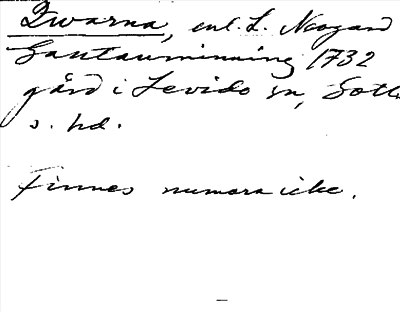 Qwarna, enl. L. Neogard
Gautauminning 1732
gård i Levide sn, Gotl.
s. hd.
Finnes numera icke.